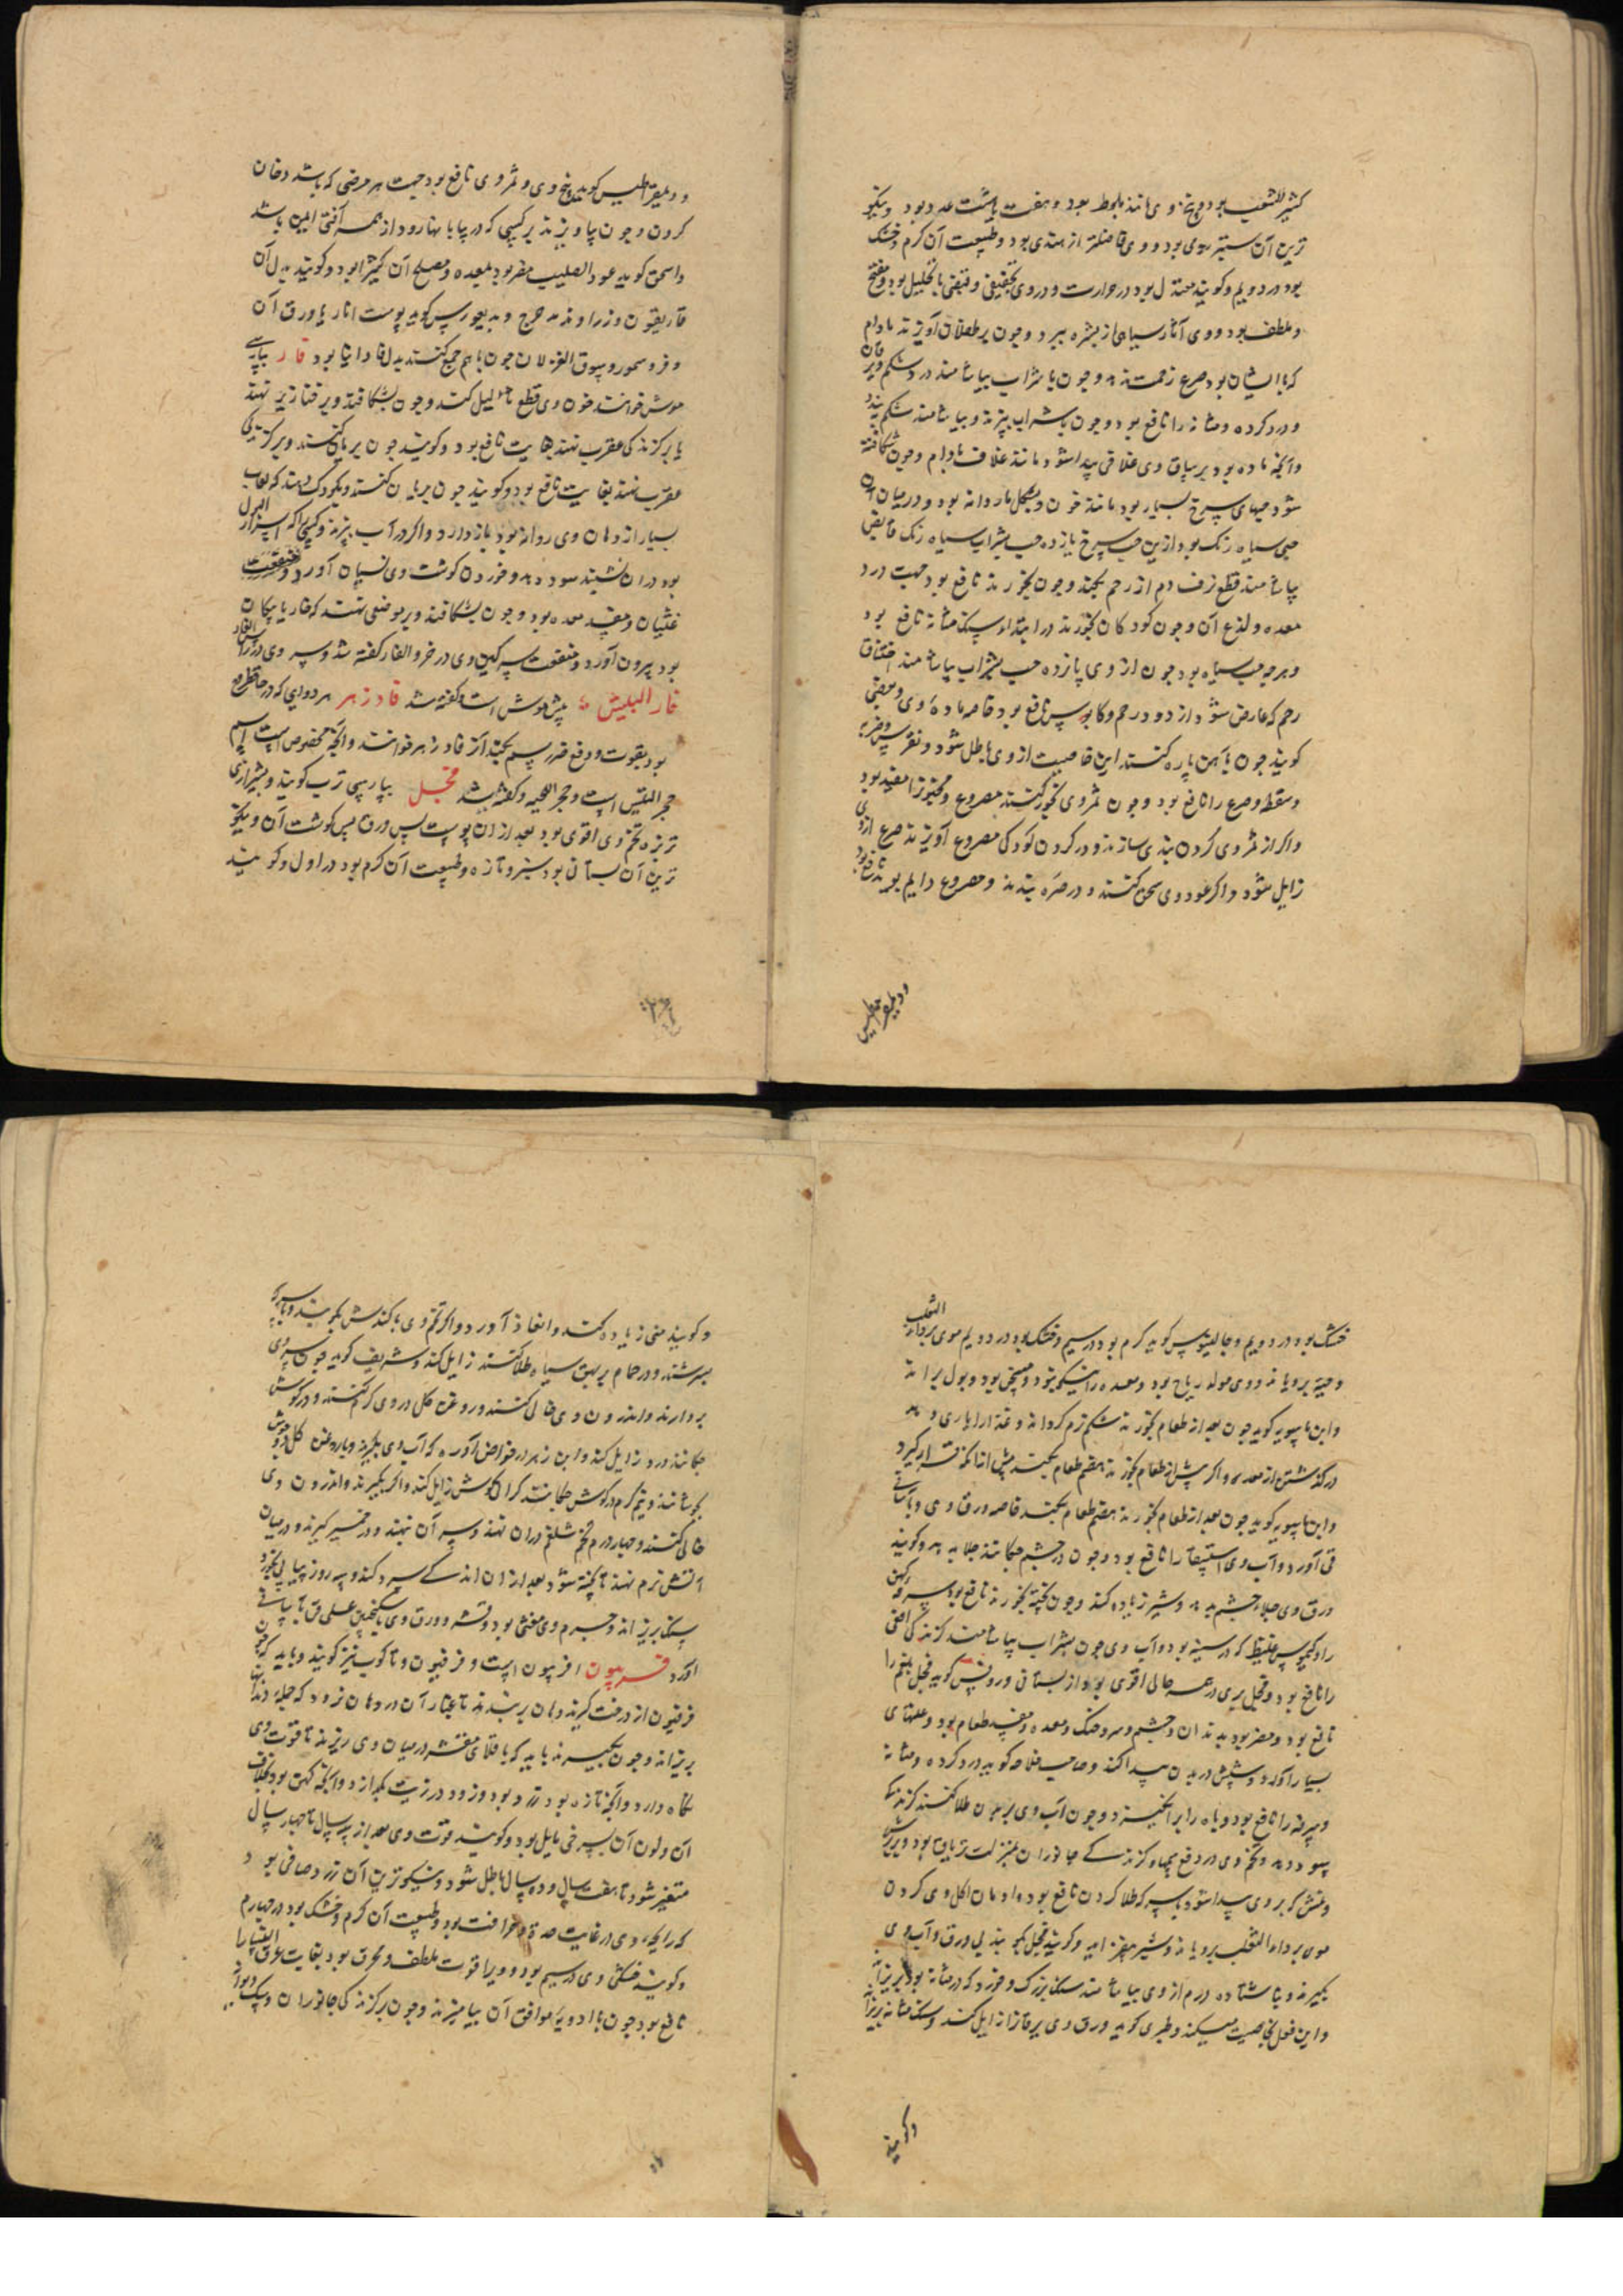 کثیر الشعب بود و بیخ وی مانند بلوط بود و هفت یا هشت عدد بود و نیکو
ترین آن ستبر رومی بود و وی فاضلتر از هندی بود و طبیعت آن گرم و خشک
بود در دویم و گویند معتدل بود در حرارت و در وی تجفیفی و قبضی با تحلیل بود و مفتح
و ملطف بود و وی آثار سیاهی از بشره ببرد و چون بر طفلان آویزند مادام
که با ایشان بود صرع زحمت ندهد و چون با شراب بیاشامند درد شکم و یرقان
و درد کرده و مثانه را نافع بود و چون با شراب بپزند و بیاشامند شکم ببندد
و آنچه ماده بود بر ساق وی غلافی پیدا شود مانند غلاف بادام و چون شکافته
شود حبهای سرخ بسیار بود مانند خون و بشکل ناردانه بود و در میان آن
حبی سیاه رنگ بود ازین حب سرخ یازده حب بشراب سیاه رنگ قابض
بیاشامند قطع نزف دم از رحم بکند و چون بخورند نافع بود جهت درد
معده و لذع آن و چون کودکان بخورند در ابتداء سنگ مثانه نافع بود
و هر چه حب سیاه بود چون از وی پانزده حب بشراب بیاشامند اختناق
رحم که عارض شود از درد رحم و کابوس نافع بود خاصه ماده وی و بعضی
گویند چون با آهن پاره کنند این خاصیت از وی باطل شود و نقرس و ضربه
و سقطه و صرع را نافع بود و چون ثمر وی بخور کنند مصروع و مجنون را مفید بود
و اگر از ثمر وی گردن بندی سازند و در گردن کودکی مصروع آویزند صرع از وی
زایل شود و اگر عود وی سحق کنند و در صره بندند و مصروع دایم بوید نافع بود
و دیمقراطیس
و دیمقراطیس گوید بیخ وی و ثمر وی نافع بود جهت هر مرضی که باشد دخان
کردن و چون بیاویزند بر کسی که در بیابانها رود از همه آفتی ایمن باشد
و اسحق گوید عود الصلیب مضر بود بمعده و مصلح آن کثیرا بود و گویند بدل آن
غاریقون و زراوند مدحرج و دیسقوریدس گوید پوست انار یا ورق آن
و فرو سمور و سوق الغزلان چون با هم جمع کنند بدل فاوانیا بود فار بپارسی
موش خوانند خون وی قطع ثالیل کند و چون بشکافند و بر خنازیر نهند
یا بر گزندگی عقرب نهند بغایت نافع بود و گویند چون بریان کنند و بر گزندگی
عقرب نهند بغایت نافع بود و گویند چون بریان کنند و بکودک دهند که لعاب
بسیار از دهان وی روانه بود باز دارد و اگر در آب بپزند و کسی را که عسر البول
بود در آن نشیند سود دهد و خوردن گوشت وی نسیان آورد
غثیان و مفسد معده بود و چون بشکافند و بر موضعی نهند که خار یا پیکان
بود بیرون آورد و منفعت سرگین وی در خرو الفار گفته شد و سر وی در رأس الفار
فار البیش بیش موش است و گفته شد فادزهر هر دوایی که در حفظ روح
بود بقوت و دفع ضرر سم بکند آنرا فادزهر خوانند و آنچه مخصوص است باسم
حجر التیس است و حجر الحیه و گفته شد فجل بپارسی ترب گویند و بشیرازی
تربزه تخم وی اقوی بود بعد از آن پوست پس ورق پس گوشت آن و نیکو
ترین آن بستانی بود سبز و تازه و طبیعت آن گرم بود در اول و گویند
خشک بود در دویم و جالینوس گوید گرم بود در سیم و خشک بود در دویم موی بر داء الثعلب
و حیه برویاند و وی مولد ریاح بود و معده را نیکو بود و مسخن بود و بول براند
و ابن ماسویه گوید چون بعد از طعام بخورند شکم نرم گرداند و غذا را یاری دهد
در گذشتن از معده و اگر پیش از طعام بخورند هضم طعام نکند پیش از آنکه قرار گیرد
و ابن ماسویه گوید چون بعد از طعام بخورند هضم طعام بکند خاصه ورق وی و بآسانی
قی آورد و آب وی استسقا را نافع بود و چون در چشم چکانند جلا بدهد و گویند
ورق وی جلاء چشم بدهد و شیر زیاده کند و چون پخته بخورند نافع بود سرفه کهن
را و کیموس غلیظ که در سینه بود و آب وی چون بشراب بیاشامند گزندگی افعی
را نافع بود و فجل بری در همه حالی اقوی بود از بستانی و روفس گوید فجل بلغم را
نافع بود و مضر بود بدندان و چشم و سر و حنک و معده و مفسد طعام بود و علتهای
بسیار آورد و شپش در بدن پیدا کند و صاحب فلاحه گوید درد کرده و مثانه
و سرفه را نافع بود و باه را برانگیزد و چون آب وی بر بدن طلا کنند گزندگی
سود دهد و تخم وی در دفع سمها و گزندگی جانوران بمنزلت تریاق بود و بر رش
و نمش که بر روی پیدا شود با سرکه طلا کردن نافع بود و ادمان اکل وی کردن
موی بر داء الثعلب برویاند و شیر بیفزاید و گویند فجل بکوبند بی ورق و آب وی
بگیرند و ناشتا ده درم از وی بیاشامند سنگ بزرگ و خرد که در مثانه بود بریزاند
و این فعل بخاصیت میکند و طبری گوید ورق وی یرقان زایل کند و سنگ مثانه بریزاند
و گویند
و گویند منی زیاده کند و انعاظ آورد و اگر تخم وی با کندش بکوبند و با سرکه
بسرشند و در حمام بر بهق سیاه طلا کنند زایل کند و شریف گوید چون سر وی
بردارند و اندرون وی خالی کنند و روغن گل در وی گرم کنند و در گوش
چکانند درد زایل کند و ابن زهر در خواص آورده که آب وی بگیرند و با روغن گل بر جوش
بجوشانند و نیم گرم در گوش چکانند گرانی گوش زایل کند و اگر بگیرند و اندرون وی
خالی کنند و چهار درم تخم شلغم در آن نهند و سر آن نهند و در خمیر گیرند و در میان
آتش نرم نهند تا پخته شود بعد از آن اندکی سرد کند و سه روز پیاپی بخورد
سنگ بریزاند و جرم وی مغثی بود و قشر و ورق وی با سکنجبین عسلی قی بآسانی
آورد فربیون افربیون است و فرفیون و تاکوب نیز گویند و باید که چون
فرفیون از درخت گیرند دهان بربندند تا غبار آن در دهان نرود که جمله دندانها
بریزاند و چون بگیرند باید که باقلای مقشر در میان وی ریزند تا قوت وی
نگاه دارد و آنچه تازه بود زرد بود و زود در زیت بگدازد و آنچه کهن بود بخلاف
آن و لون آن بسرخی مایل بود و گویند قوت وی بعد از سه سال تا چهار سال
متغیر شود تا هفت سال و ده سال باطل شود و نیکوترین آن زرد صافی بود
که رایحه وی در غایت حدة و حرافت بود و طبیعت آن گرم و خشک بود در چهارم
و گویند خشکی وی در سیم بود و ویرا قوت ملطف و محرق بود بغایت عرق النسا را
نافع بود چون با ادویه موافق آن بیامیزند و چون بر گزندگی جانوران و سگ دیوانه